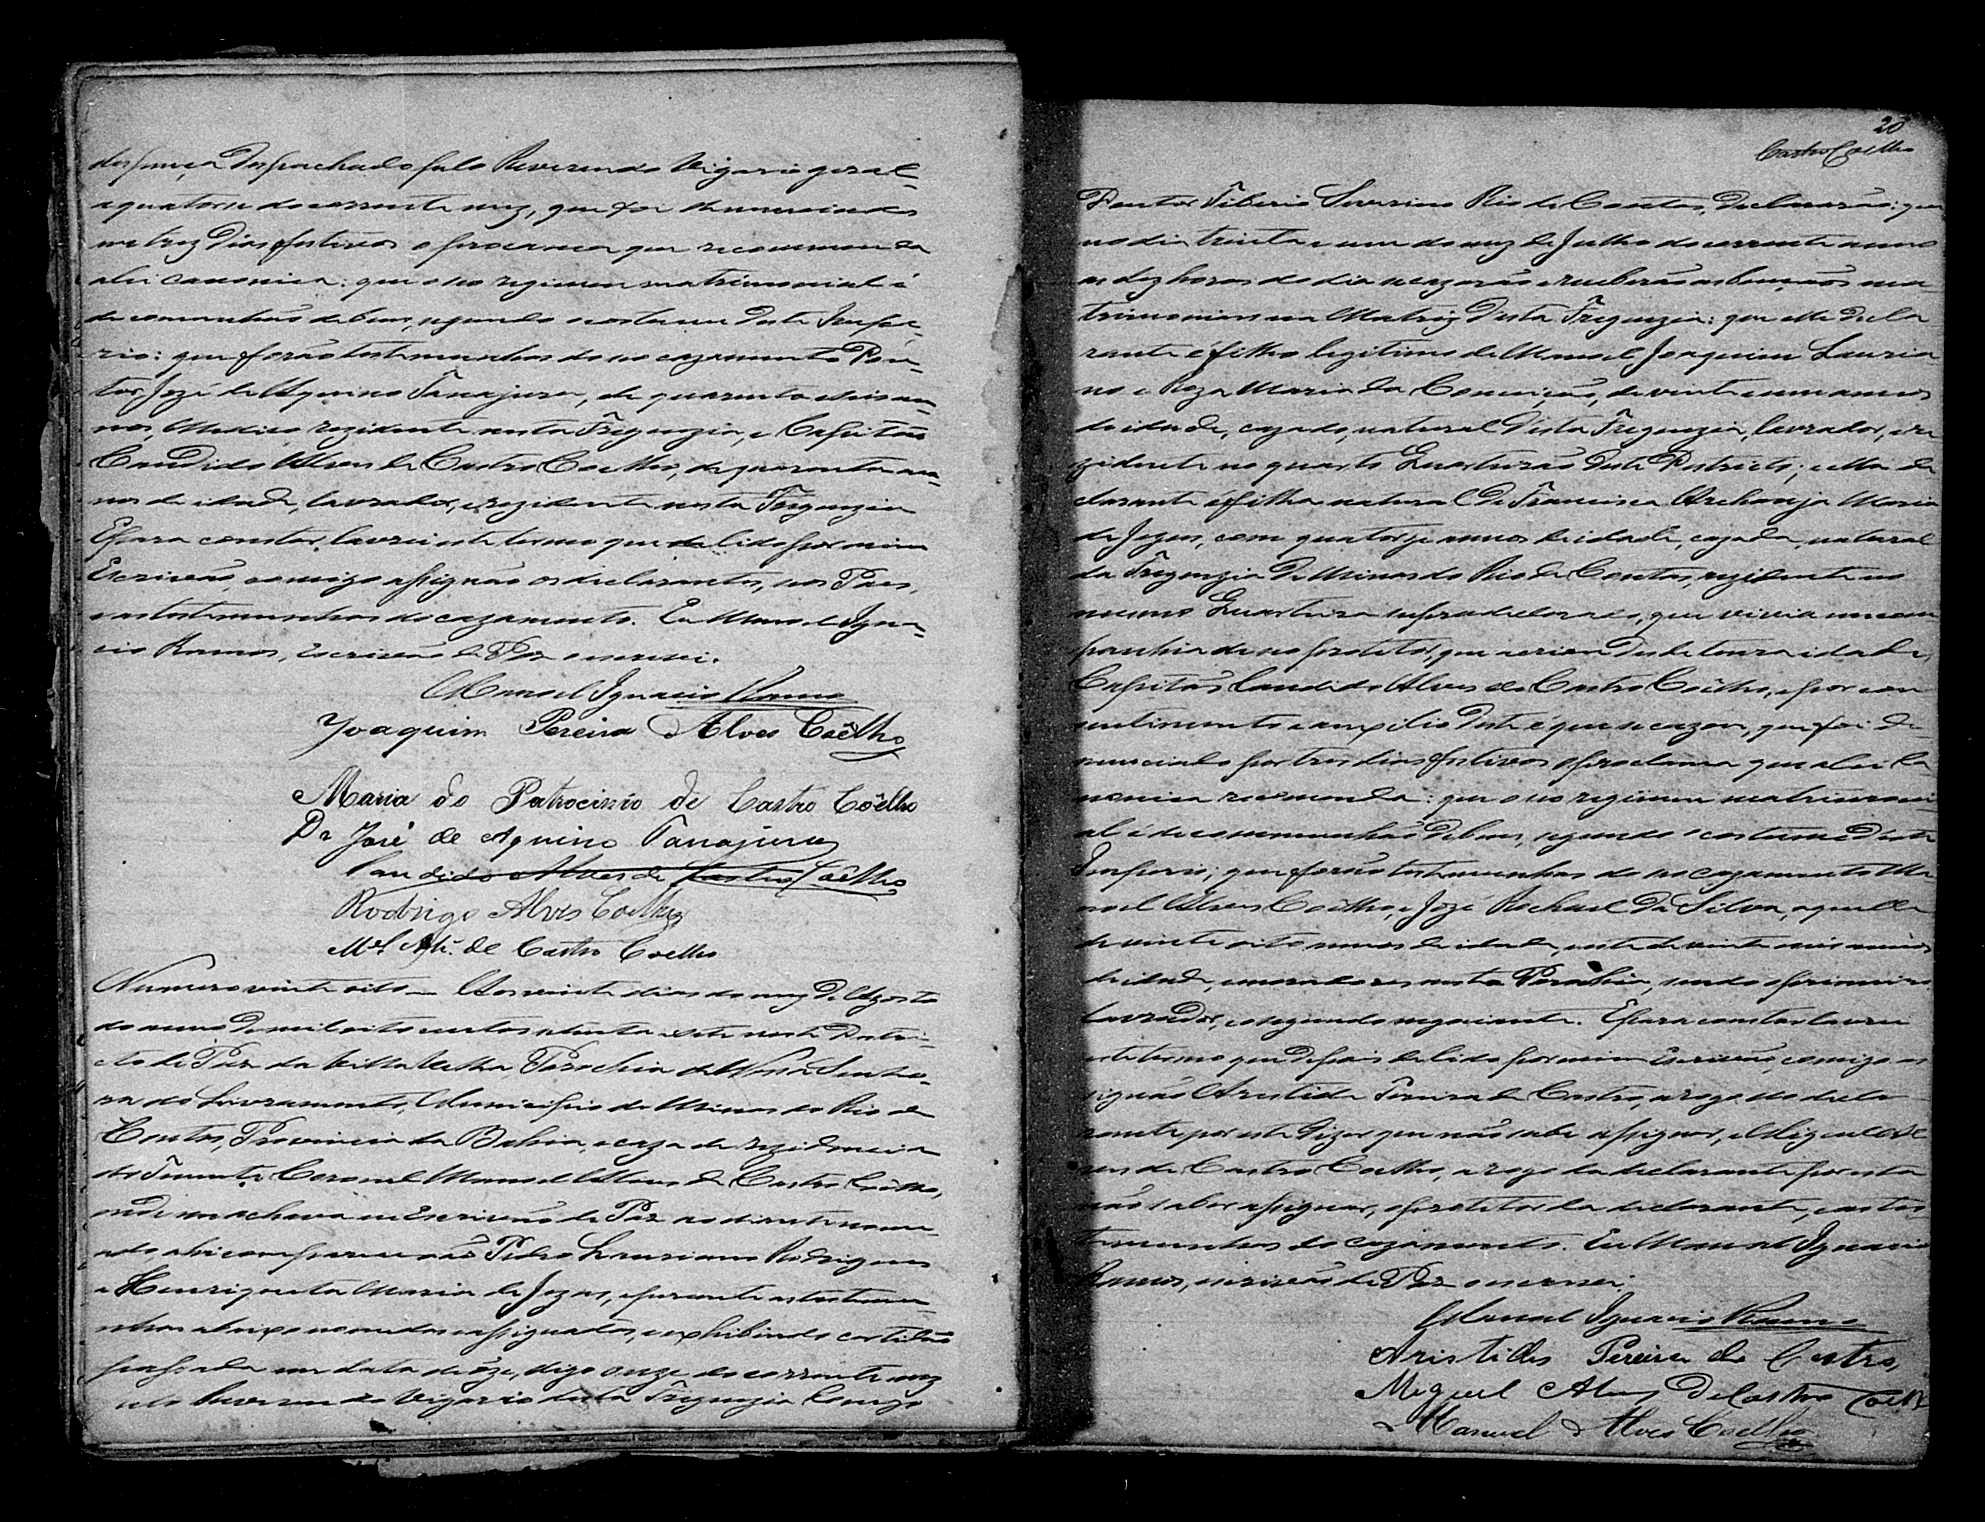 dispença despachado pelo Reverendo Vigario geral
a quatorze do corrente mez, que foi denunciado
em trez dias festivos o proclama que recommenda
a lei canonica: que o seo regimen matrimonial é
de communhão de bens, segundo o costume deste Impe-
rio: que forão testemunhas do seo cazamento Dou-
tor Jozé de Aquino Tanajura, de quarenta e seis an-
nos, Medico, rezidente nesta Freguezia, e Capitão
Candido Alves de Castro Coelho, de quarenta an-
nos de idade, lavrador, e rezidente nesta Freguezia
E para constar, lavrei este termo que de lido por mim
Escrivão, comigo assignão os declarantes, seos Paes,
e as testemunhas do cazamento. Eu Manoel Igna-
cio Ramos, Escrivão de Paz o escrevi.
Manoel Ignacio Ramos
Joaquim Pereira Alves Coêlho
Maria do Patrocinio de Castro Coêlho
Dr José de Aquino Tanajura
Candido Alves de Castro Coêlho
Rodrigo Alves Coelho
Mel de Castro Coelho
Numero vinte oito — Aos vinte dias do mez de Agosto
do anno de mil oito centos oitenta e sete neste Distri-
cto de Paz da Villa Velha, Parochia de Nossa Senho-
ra do Livramento, Municipio de Minas do Rio de
Contas, Provincia da Bahia, e caza de rezidencia
do Tenente Coronel Manoel Alves de Castro Coelho,
onde me achava eu Escrivão de Paz ao diante nome-
ado, ahi comparecerão Pedro Lauriano Rodrigues
e Henriqueta Maria de Jezus, e perante as testemu-
nhas abaixo nomeadas e assignadas, exhibindo certidão
passada em data de doze, digo onze do corrente mez
pelo Reverendo Vigario desta Freguezia Conego
20
Castro Coelho
Doutor Tiberio Severino Rio de Contas, declararão: que
no dia trinta e um do mez de Julho do corrente anno
as dez horas do dia se cazarão e receberão as bençãos ma-
trimoniaes na Matriz desta Freguezia: que elle decla-
rante é filho legitimo de Manoel Joaquim Lauria-
no e Roza Maria da Conceição, de vinte e um annos
de idade, cazado, natural desta Freguezia, lavrador, e re-
zidente no quarto Quarteirão deste Districto; e ella de-
clarante é filha natural de Francisca Archanja Maria
de Jezus, com quatorze annos de idade, cazada, natural
da Freguezia de Minas do Rio de Contas, rezidente no
mesmo Quarteirão supradeclarado, que vivia em com-
panhia de seo protetor, que a criou desde tenra idade,
Capitão Candido Alves de Castro Coêlho, e por con-
sentimento e auxilio deste é que se cazou, que foi de-
nunciado por tres dias festivos o proclama que a lei ca-
nonica recomenda: que o seo regimen matrimoni-
al é de communhão de bens, segundo o costume deste
Imperio; que forão testemunhas do seo cazamento Ma-
noel Alves Coêlho, e Jozé Rachael da Silva, aquelle
de vinte oito annos de idade, e este de vinte seis annos
de idade, e moradores nesta Parochia, sendo o primeiro
lavrador, e o segundo negociante. E para constar lavrei
este termo que depois de lido por mim Escrivão, comigo as-
signão Aristides Pereira de Castro, a rogo do decla-
rante por este dizer que não sabe assignar, e Miguel Al-
ves de Castro Coelho, a rogo da declarante por esta
não saber assignar, o protetor da declarante, e as tes-
temunhas do cazamento. Eu Manoel Ignacio
Ramos, escrivão de Paz o escrevi.
Manoel Ignacio Ramos
Aristides Pereira de Castro
Miguel Alves de Castro Coelho
Manoel Alves Coelho